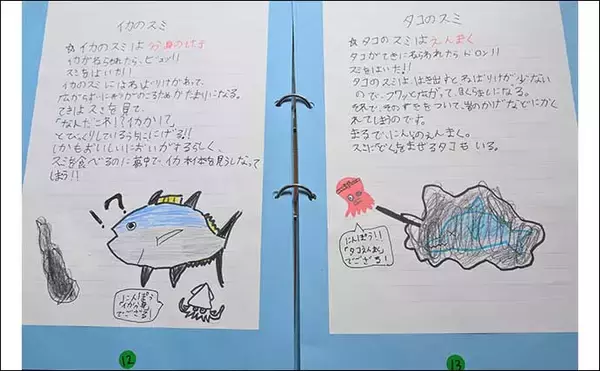 イカのスミ
☆ イカのスミは 分身のじゅつ
イカがねらわれたら、ピュッ!!
スミをはいた!!
イカのスミにはねばりけがあって、
広がらずにかたまりになる。
てきはスミを見て、
「なんだこれ!?イカか!?」
とびっくりしているうちににげる!!
しかもおいしいにおいがするらしく、
スミを食べるのに夢中で、イカ本体を見うしなって
しまう!!
!?
にんぽう
「イカ分身」
でござる!
12
タコのスミ
☆ タコのスミは えんまく
タコがてきにねらわれたらドロン!!
スミをはいた!!
タコのスミは、はき出すとねばりけが少ない
ので、フワッと広がって、まくらましになる。
それで、そのすきをついて、岩のかげなどにかく
れてしまうのです。
まるで、にんじゃのえんまく。
スミにどくをまぜるタコもいる。
にんぽう!!
「タコえんまく」
でござる!
13